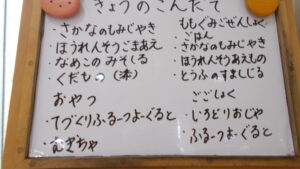 きょうのこんだて
・さかなのもみじやき
・ほうれんそうごまあえ
・なめこのみそしる
・くだもの
おやつ
・てづくりふるーつよーぐると
・むぎちゃ
ももぐみごぜんしょく
・ごはん
・さかなのもみじやき
・ほうれんそうあえもの
・とうふのすましじる
ごごしょく
・いろどりおじや
・ふるーつよーぐると